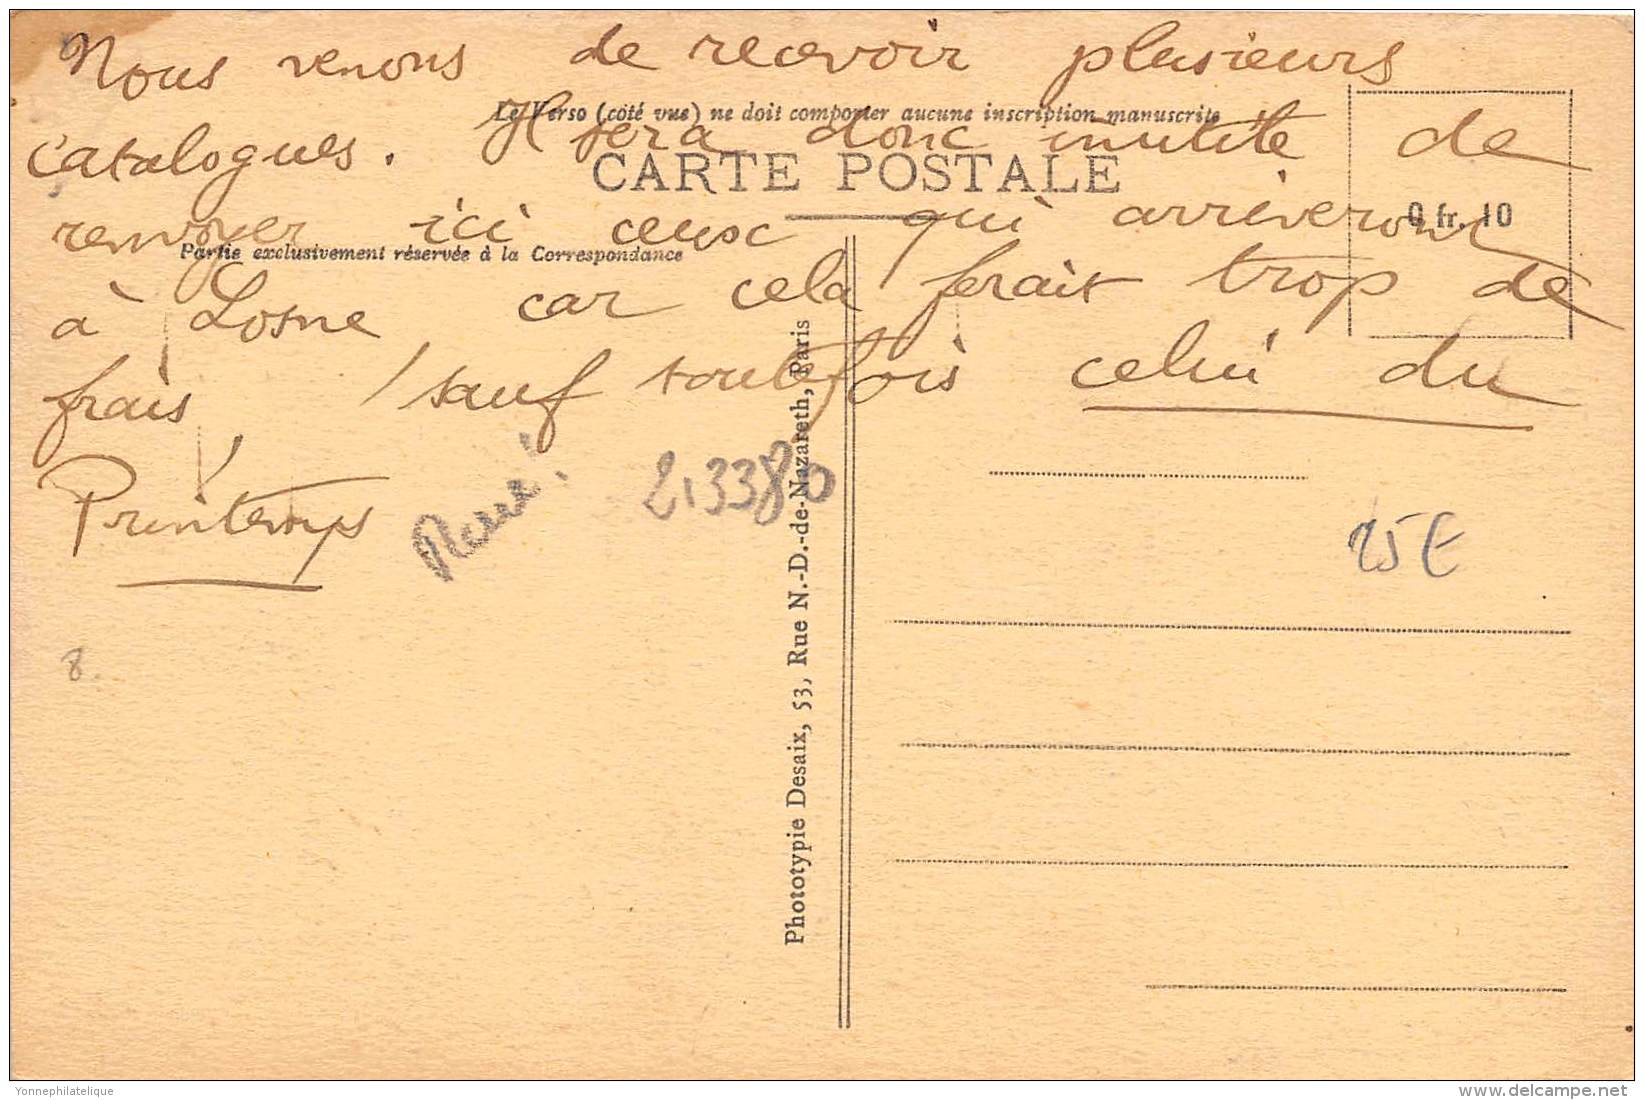 Nous venons de recevoir plusieurs
Le Verso (côté vue) ne doit comporter aucune inscription manuscrite
catalogues. Il sera donc inutile de
CARTE POSTALE
renvoyer ici ceux qui arriveront
0 fr. 10
Partie exclusivement réservée à la Correspondance
à Losne car cela ferait trop de
frais, sauf toutefois celui du
Printemps
2,3380
15E
8.
Phototypie Desaix, 53, Rue N.-D.-de-Nazareth, Paris
Yonnephilatelique
delcampe.net